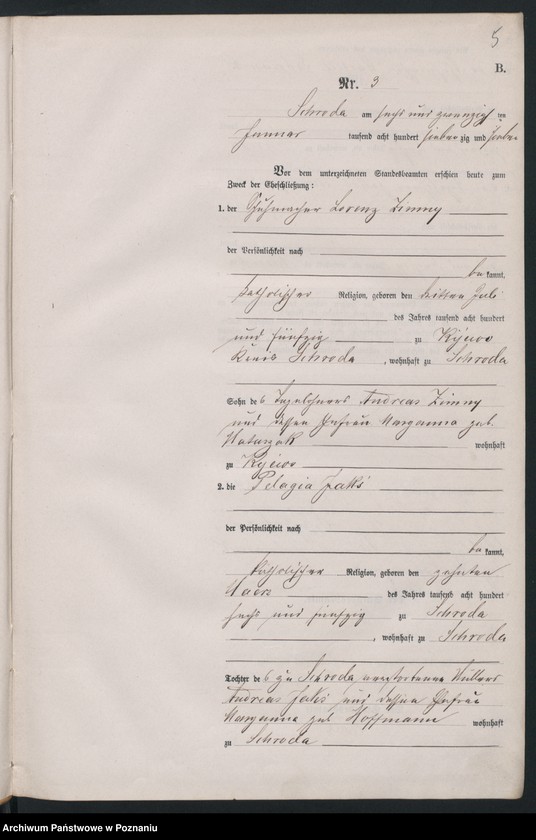 5
B.
Nr. 3
Schroda am sechs und zwanzigsten
Januar tausend acht hundert siebenzig und sieben
Vor dem unterzeichneten Standesbeamten erschien heute zum
Zweck der Eheschließung:
1. der Schuhmacher Lorenz Zimny
der Persönlichkeit nach
bekannt,
katholischer Religion, geboren den dritten Juli
des Jahres tausend acht hundert
und fünfzig zu Kijewo
Kreis Schroda, wohnhaft zu Schroda
Sohn des Tagelöhners Andreas Zimny
und dessen Ehefrau Maryanna geb.
Ratajczak wohnhaft
zu Kijewo
2. die Pelagia
der Persönlichkeit nach
bekannt,
katholischer Religion, geboren den zehnten
Maerz des Jahres tausend acht hundert
sechs und fünfzig zu Schroda
, wohnhaft zu Schroda
Tochter des zu Schroda verstorbenen Müllers
Andreas und dessen Ehefrau
Maryanna geb. Hoffmann wohnhaft
zu Schroda
Archiwum Państwowe w Poznaniu